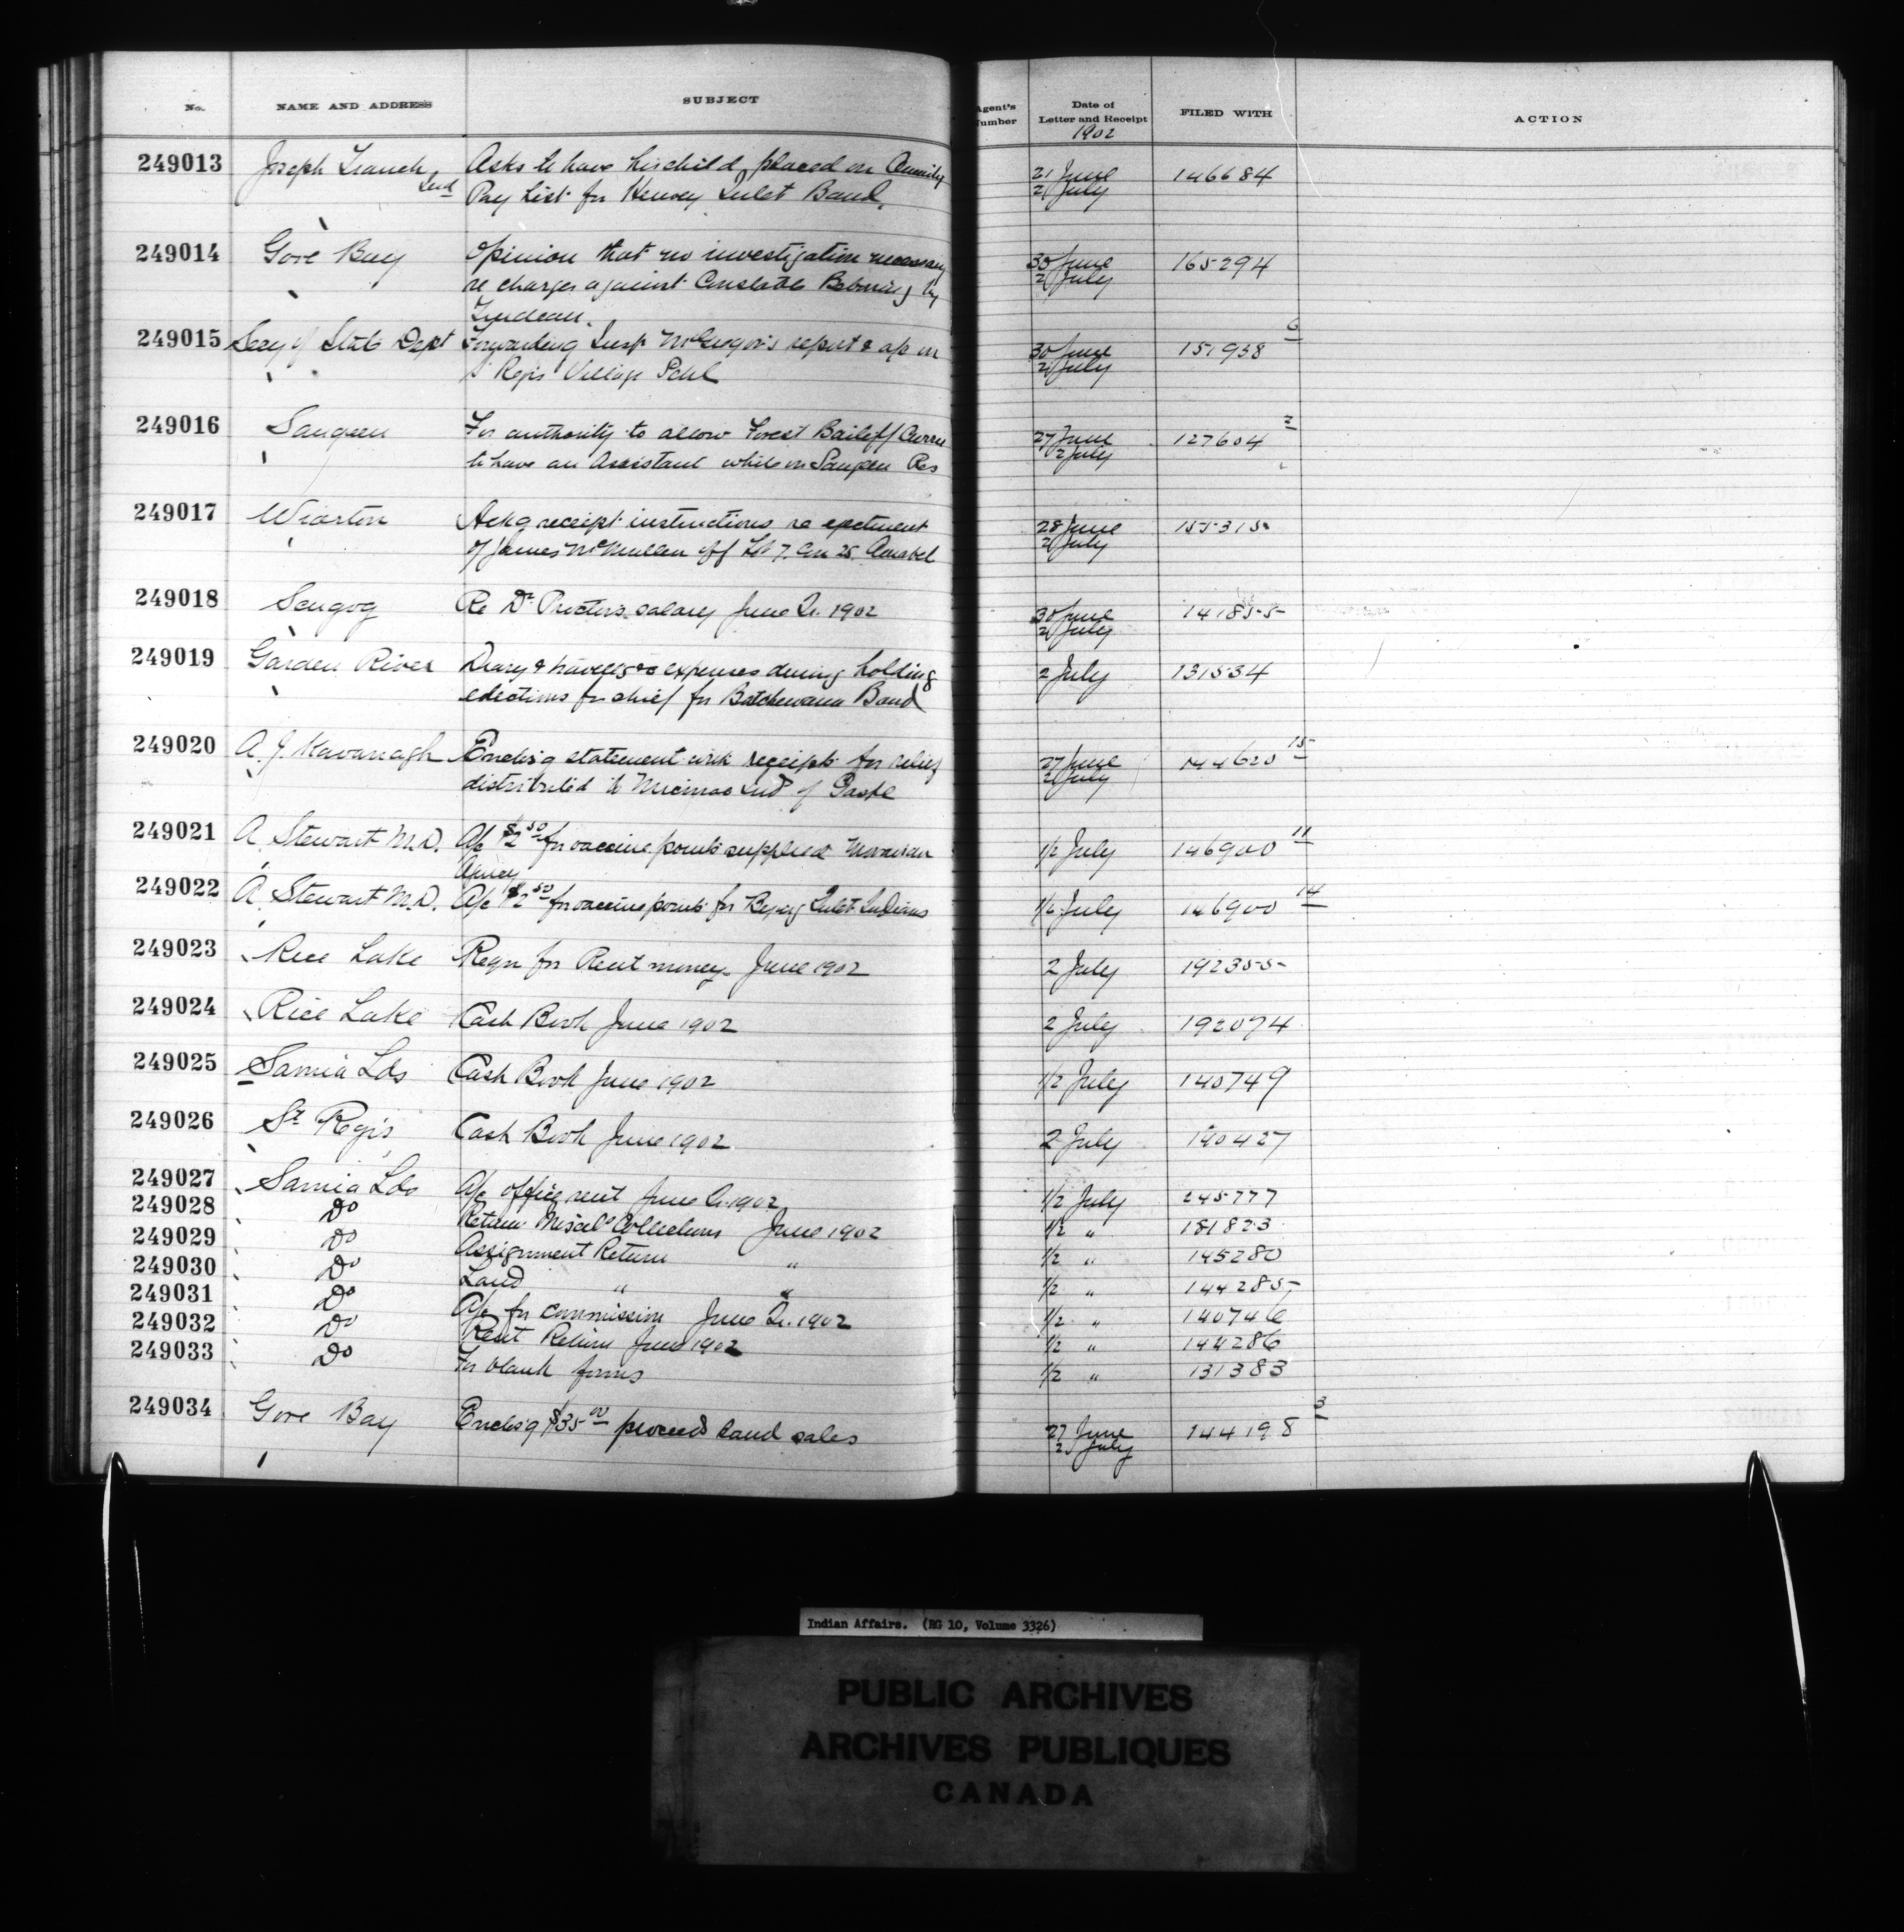 No. NAME AND ADDRESS SUBJECT Agent's Number Date of Letter and Receipt FILED WITH ACTION
1902
249013 Joseph Asks to have his child placed on Annuity 21 June 146684
Ind Pay List for Henvey Inlet Band. 2 July
249014 Gore Bay Opinion that no investigation necessary 30 June 165294
re charges against Constable by 2 July
249015 Secy of State Dept Forwarding Insp McGregor's report & a/c on 30 June 151958 6
St Regis Village Schl 2 July
249016 Saugeen For authority to allow Forest Bailiff 27 June 127604 2
to have an Assistant while on Saugeen Res 2 July
249017 Wiarton Ackg receipt instructions re ejectment 28 June 155315
of James McMullen off Lot 7. Con 25. Amabel 2 July
249018 Scugog Re Dr Proctor's salary June Qr. 1902 30 June 141855
2 July
249019 Garden River Diary & travellg expenses during holding 2 July 131534
elections for chief for Batchewana Band
249020 A. J. Kavanagh Enclos'g statement with receipts for relief 27 June 144620 15
distributed to Micmac Inds of Gaspe 2 July
249021 A. Stewart M.D. A/c $2 50 for vaccine points supplied Moravian 1/2 July 146900 11
Agency
249022 A. Stewart M.D. A/c $2 50 for vaccine points for Inlet Indians 1/2 July 146900 14
249023 Rice Lake Reqn for Rent money June 1902 2 July 192355
249024 Rice Lake Cash Book June 1902 2 July 192074
249025 Sarnia Lds Cash Book June 1902 1/2 July 140749
249026 St Regis Cash Book June 1902 2 July 190427
249027 Sarnia Lds A/c office rent June Qr. 1902 1/2 July 245777
249028 Do Return Miscels Collections June 1902 1/2 " 181823
249029 Do Assignment Return " 1/2 " 145280
249030 Do Land " " 1/2 " 144285
249031 Do A/c for commission June Qr. 1902 1/2 " 140746
249032 Do Rent Return June 1902 1/2 " 144286
249033 Do For blank forms 1/2 " 131383
249034 Gore Bay Enclos'g $35 00 proceeds land sales 27 June 144198 3
2 July
Indian Affairs. (RG 10, Volume 3326)
PUBLIC ARCHIVES
ARCHIVES PUBLIQUES
CANADA